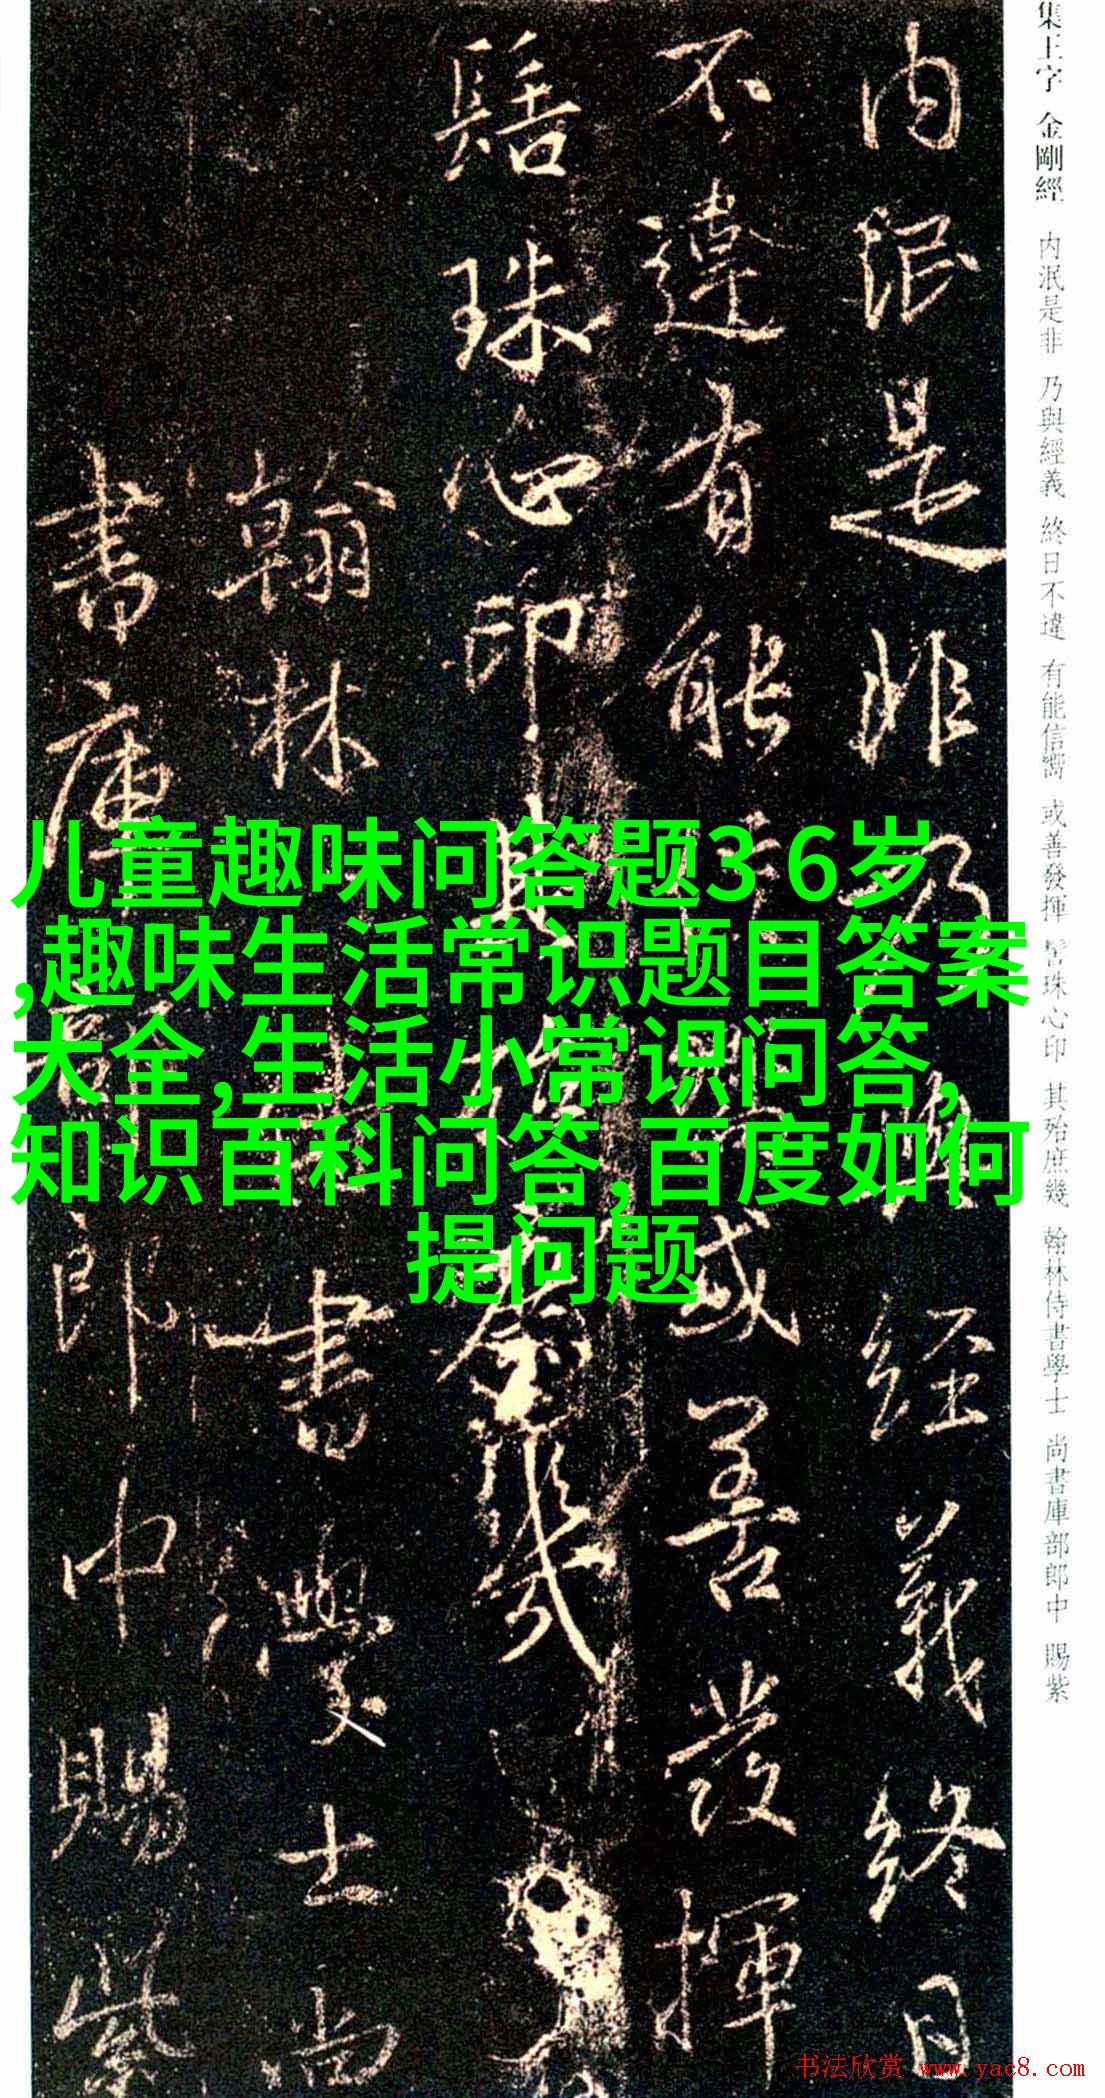 集王字 金剛經 内泯是非 乃與經義 終日不違 有能信嚮 或善發揮 髻珠心印 其殆庶幾 翰林侍書學士 尚書庫部郎中 賜紫
内泯是非乃與經義終日
不違有能信或善發揮
髻珠心印其殆庶幾
翰林侍書學士尚
書庫部郎中賜紫
儿童趣味问答题3 6岁
,趣味生活常识题目答案
大全,生活小常识问答,
知识百科问答,百度如何
提问题
书法欣赏 www.yac8.com